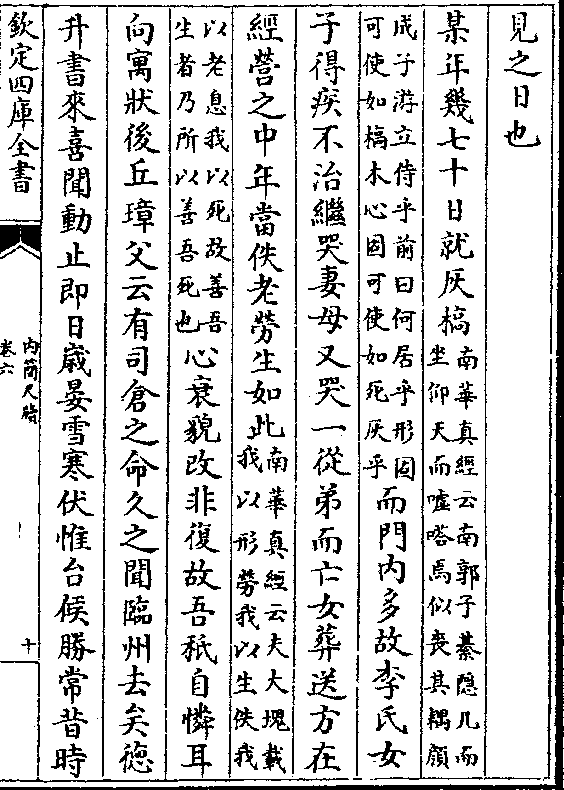 見之日也
某年幾七十日就灰槁南華真經云南郭子綦隱几而坐仰天而噓嗒焉似喪其耦顔
成子游立侍乎前曰何居乎形固可使如槁木心固可使如死灰乎而門内多故李氏女
子得疾不治繼哭妻母又哭一從弟而亡女葬送方在
經營之中年當佚老勞生如此南華真經云夫大塊載我以形勞我以生佚我
以老息我以死故善吾生者乃所以善吾死也心衰貌改非復故吾秖自憐耳
向寓狀後丘璋父云有司倉之命久之聞臨州去矣徳
升書來喜聞動止即日嵗晏雪寒伏惟台候勝常昔時
欽定四庫全書
内簡尺牘
卷六
十